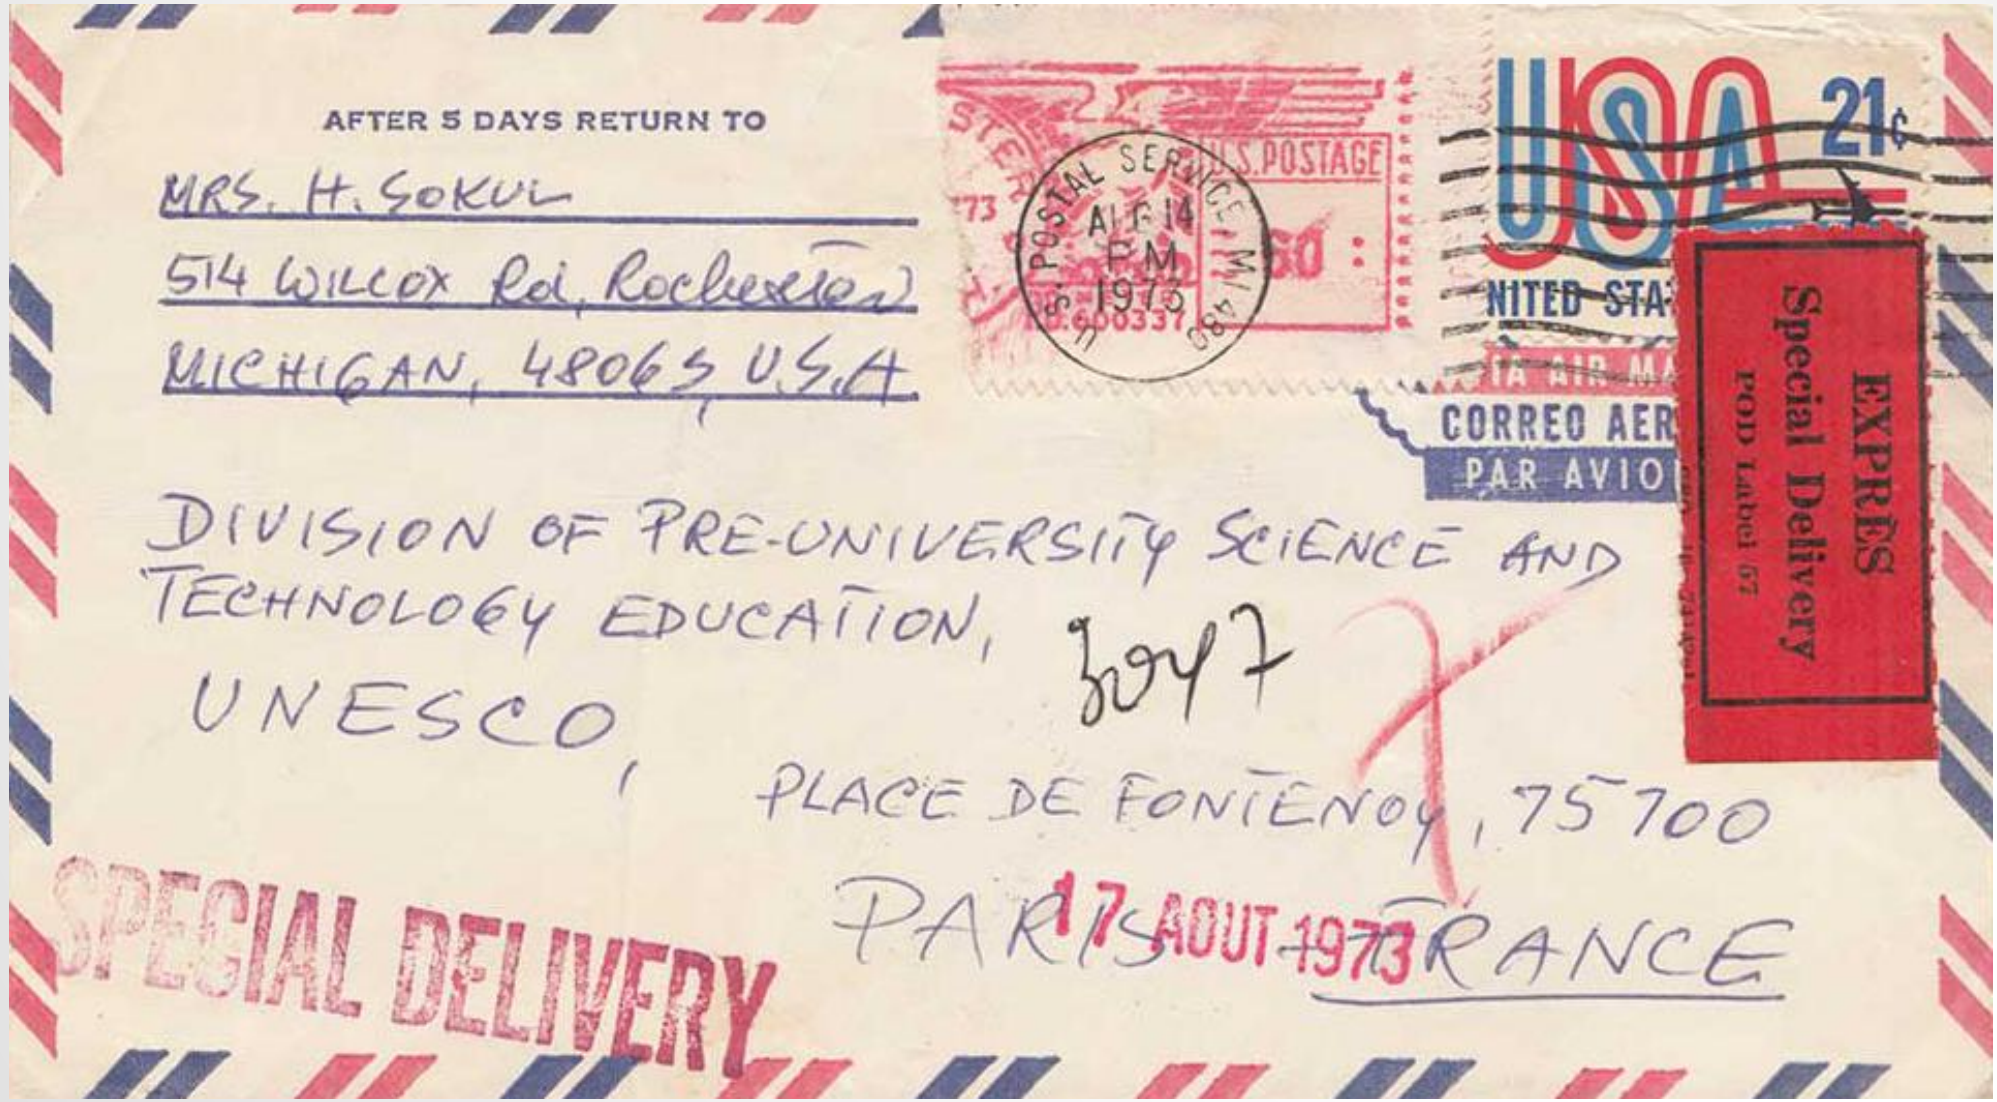 AFTER 5 DAYS RETURN TO
MRS. H. SOKUL
514 WILCOX Rd, Rochester
MICHIGAN, 48063, U.S.A.
STER
'73
U.S. POSTAGE
60
600337
U.S. POSTAL SERVICE, MI 480
AUG 14
PM
1973
USA 21¢
NITED STA
IA AIR MA
CORREO AER
PAR AVIO
EXPRÈS
Special Delivery
POD Label 57
DIVISION OF PRE-UNIVERSITY SCIENCE AND
TECHNOLOGY EDUCATION,
UNESCO,
PLACE DE FONTENOY, 75700
PARIS - FRANCE
17 AOUT 1973
SPECIAL DELIVERY